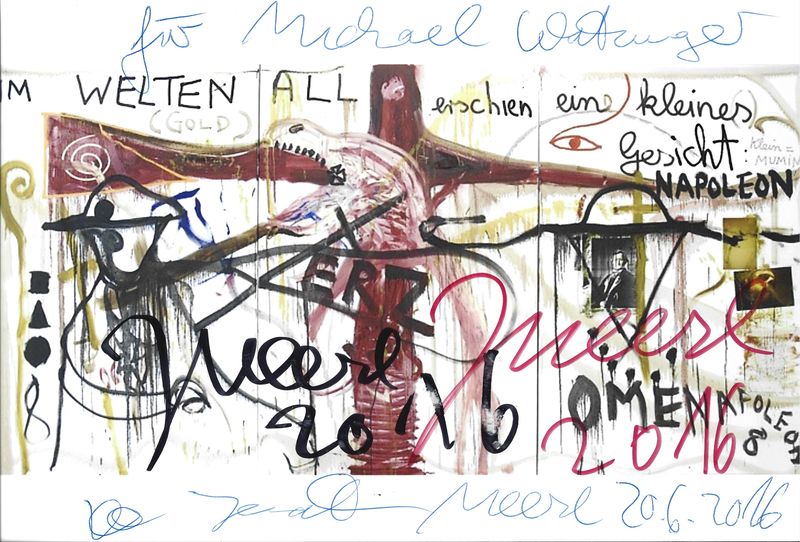 für Michael Watzinger
IM WELTEN ALL erschien eine kleines
(GOLD)
Gesicht:
Klein =
MUMIN
NAPOLEON
ERZ
Meese
2016
Meese
2016
ÖMEN
NAPOLEON
8
Meese 20.6.2016